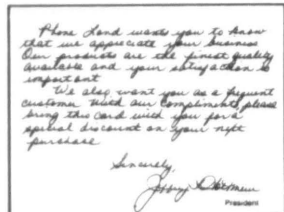 Phone Land wants you to know
that we appreciate your business
Our products are the finest quality
available and your satisfaction is
important
We also want you as a frequent
customer With our compliments please
bring this card with you for a
special discount on your next
purchase
Sincerely,
President